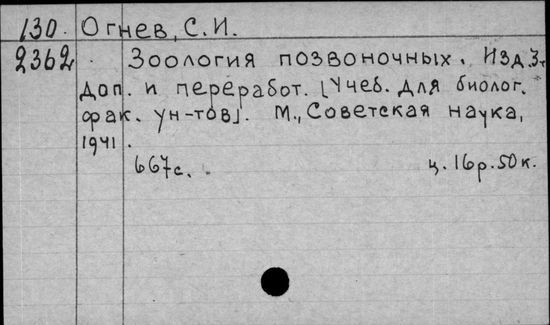 130. Огнев, С.И.
2362 Зоология позвоночных. Изд. 3.
доп. и переработ. [Учеб. для биолог.
фак. ун-тов]. М., Советская наука,
1941.
667с. ц. 16р. 50к.